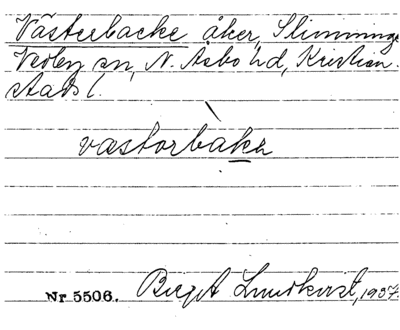 Västerbacke åker, Slimminge
Verby sn, N. Åsbo hd, Kristian-
stads l.
vastorbakə
Nr 5506. Birgit Lundkvist, 1937.